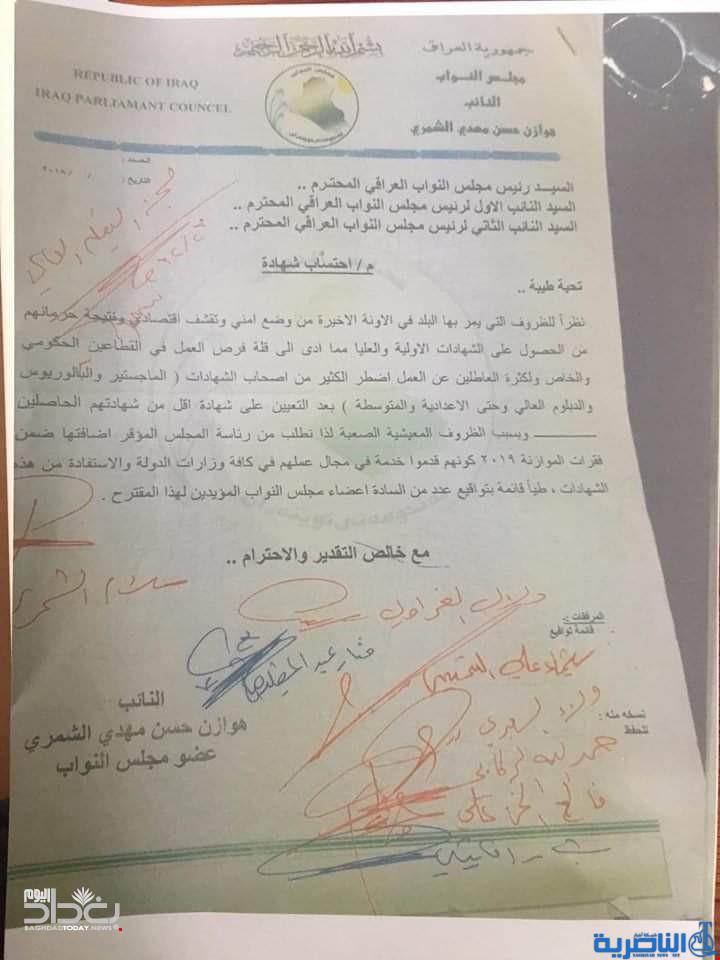 بسم الله الرحمن الرحيم
جمهورية العراق
مجلس النواب
النائب
هوازن حسن مهدي الشمري
REPUBLIC OF IRAQ
IRAQ PARLIAMANT COUNCEL
العدد :
التاريخ : / / ٢٠١٨
السيد رئيس مجلس النواب العراقي المحترم ..
السيد النائب الاول لرئيس مجلس النواب العراقي المحترم ..
السيد النائب الثاني لرئيس مجلس النواب العراقي المحترم ..
لجنة التعليم العالي
م / احتساب شهادة
تحية طيبة ..
نظراً للظروف التي يمر بها البلد في الاونة الاخيرة من وضع امني وتقشف اقتصادي ونتيجة حرمانهم
من الحصول على الشهادات الاولية والعليا مما ادى الى قلة فرص العمل في القطاعين الحكومي
والخاص ولكثرة العاطلين عن العمل اضطر الكثير من اصحاب الشهادات ( الماجستير والبالوريوس
والدبلوم العالي وحتى الاعدادية والمتوسطة ) بعد التعيين على شهادة اقل من شهادتهم الحاصلين
ـــــــــ وبسبب الظروف المعيشية الصعبة لذا نطلب من رئاسة المجلس المؤقر اضافتها ضمن
فقرات الموازنة ٢٠١٩ كونهم قدموا خدمة في مجال عملهم في كافة وزارات الدولة والاستفادة من هذه
الشهادات ، طياً قائمة بتواقيع عدد من السادة اعضاء مجلس النواب المؤيدين لهذا المقترح .
مع خالص التقدير والاحترام ..
سلام الشمري
المرفقات :
قائمة تواقيع
نسخه منه :
للحفظ
النائب
هوازن حسن مهدي الشمري
عضو مجلس النواب
فالح الخزعلي
بغداد اليوم
BAGHDADTODAY.NEWS
شبكة أخبار
الناصرية